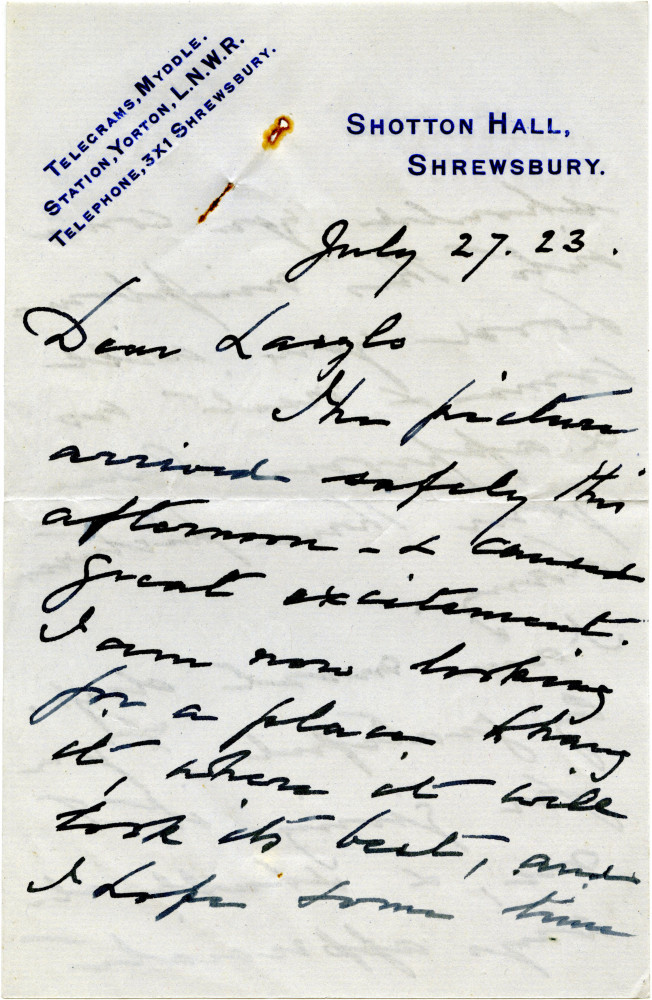 TELEGRAMS, MYDDLE.
STATION, YORTON, L.N.W.R.
TELEPHONE, 3X1 SHREWSBURY.
SHOTTON HALL,
SHREWSBURY.
July 27. 23.
Dear Laszlo
The picture
arrived safely this
afternoon - & caused
great excitement.
I am now looking
for a place to hang
it, where it will
look its best, and
I hope some time